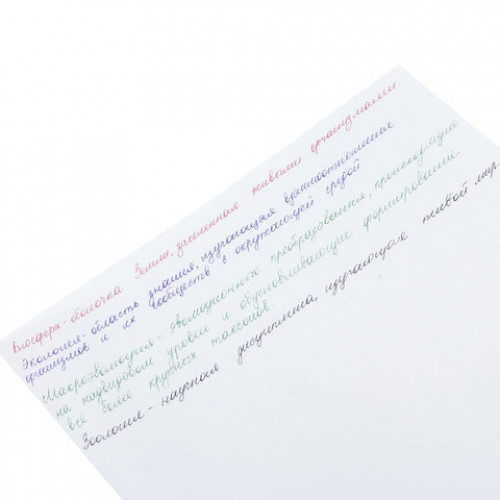 Биосфера - оболочка Земли, заселенная живыми организмами.
Экология - область знания, изучающая взаимоотношения
организмов и их сообществ с окружающей средой
Макроэволюция - эволюционные преобразования, происходящие
на надвидовом уровне и обусловливающие формирование
всё более крупных таксонов
Зоология - научная дисциплина, изучающая живой мир